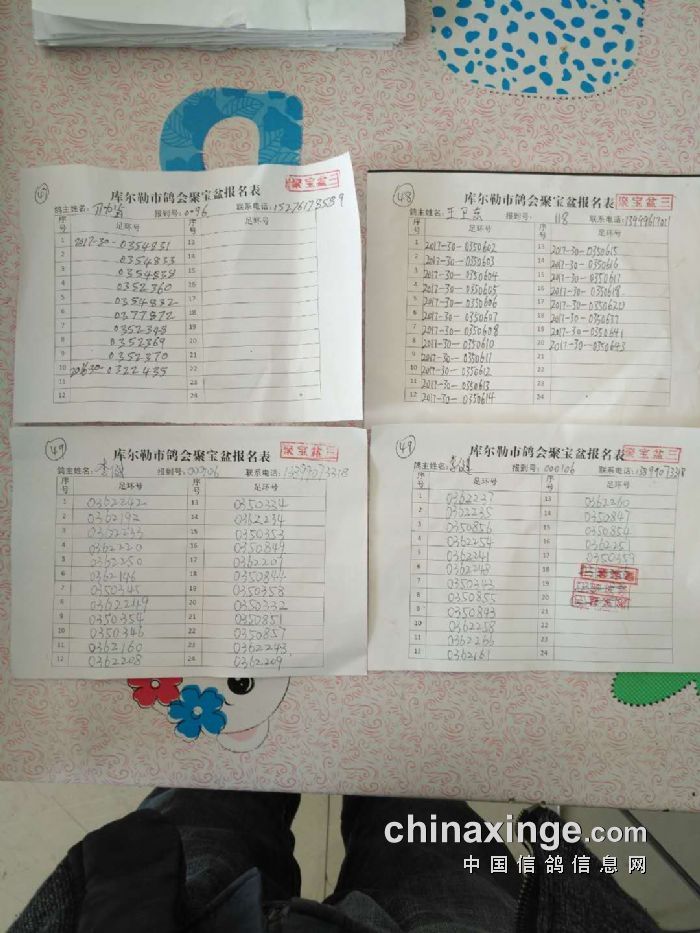 47
库尔勒市鸽会聚宝盆报名表 聚宝盆三
鸽主姓名: 报到号:0096 联系电话:
序号 足环号 序号 足环号
1 2017-30-0354831 13
2 0354833 14
3 0354838 15
4 0352360 16
5 0354832 17
6 0377872 18
7 0352348 19
8 0352369 20
9 0352370 21
10 0322435 22
11 23
12 24
48
库尔勒市鸽会聚宝盆报名表 聚宝盆三
鸽主姓名:王卫东 报到号: 118 联系电话:
序号 足环号 序号 足环号
1 2017-30-0350602 13 2017-30-0350615
2 2017-30-0350603 14 2017-30-0350616
3 2017-30-0350604 15 2017-30-0350617
4 2017-30-0350605 16 2017-30-0350618
5 2017-30-0350606 17 2017-30-0350620
6 2017-30-0350607 18
7 2017-30-0350608 19 2017-30-0350641
8 2017-30-0350610 20 2017-30-0350643
9 2017-30-0350611 21
10 2017-30-0350612 22
11 2017-30-0350613 23
12 2017-30-0350614 24
49
库尔勒市鸽会聚宝盆报名表 聚宝盆三
鸽主姓名:李健 报到号:000106 联系电话:
序号 足环号 序号 足环号
1 0362242 13 0350334
2 0362192 14 0362234
3 0362233 15 0350353
4 0362220 16 0350849
5 0362250 17 0362207
6 0362146 18 0350844
7 0350345 19 0350358
8 0362249 20 0350332
9 0350354 21 0350851
10 0350346 22 0350857
11 0362160 23 0362243
12 0362208 24 0362209
49
库尔勒市鸽会聚宝盆报名表 聚宝盆三
鸽主姓名:李健 报到号:000106 联系电话:
序号 足环号 序号 足环号
1 0362227 13 0362260
2 0362235 14 0350847
3 0350856 15 0350854
4 0362254 16 036225
5 0362241 17 0350359
6 0362248 18
7 0350343 19
8 0350855 20
9 0350843 21
10 0362258 22
11 0362256 23
12 0362161 24
chinaxinge.com
中国信鸽信息网